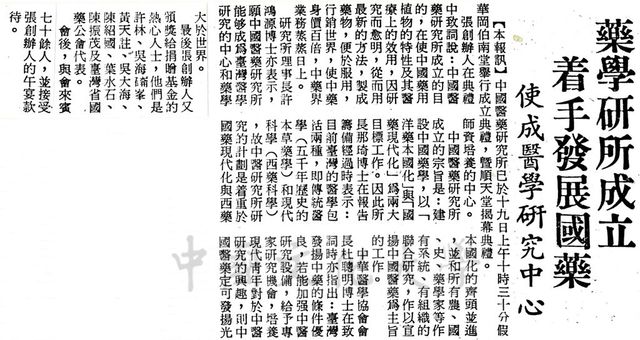 藥學研所成立
着手發展國藥
使成醫學研究中心
【本報訊】中國醫藥研究所已於十九日上午十時三十分假
華岡伯南堂舉行成立典禮，暨順天堂揭幕典禮。
張創辦人在典禮
中致詞說：中國醫
藥研究所成立的目
的，在使中國藥用
植物的特性及其醫
療上的效用，因研
究而愈明，從而用
最新的方法，製成
藥物，便於服用，
行銷世界，使中藥
身價百倍，中藥界
業務蒸蒸日上。
研究所理事長許
鴻源博士亦表示，
願中國醫藥研究所
能夠成為中國醫學
研究的中心和藥學
師資培養的中心。
中國醫藥研究所
成立的宗旨是：建
設中國藥學，以「
洋藥本國化」與「國
藥現代化」為兩大
目標工作。因此所
長那琦博士在報告
籌備經過時表示：
目前臺灣的醫學包
括兩種，即傳統醫
學（五千年歷史的
本草藥學）和現代
科學（西藥科學）
，故中醫研究所研
究的計劃是着重於
國藥現代化與西藥
本國化的齊頭並進
，並和所有農、國
、史、藥學家等作
有系統、有組織的
聯合研究，作以宣
揚中國醫藥為主旨
的工作。
中華醫學協會會
長杜聰明博士在致
詞時亦指出：臺灣
發揚中藥的條件優
良，若能加強中醫
研究設備，給予專
家研究機會，培養
現代青年對於中醫
研究的興趣，則中
國醫藥定可發揚光
大於世界。
最後張創辦人又
頒獎給捐贈基金的
熱心人士，他們是
許林、吳海峯、
黃天註、吳大海、
陳紹國、葉水石、
陳振茂及臺灣省國
藥公會代表。
會後，與會來賓
七十餘人，並接受
張創辦人的午宴款
待。